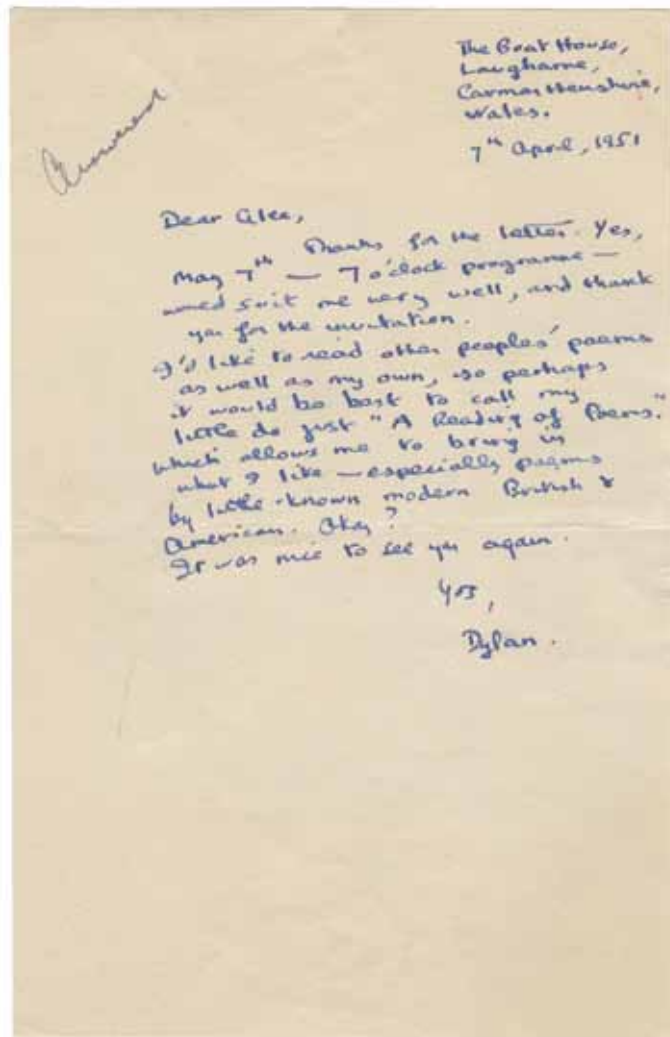 The Boat House,
Laugharne,
Carmarthenshire,
Wales.
7th April, 1951
Answered
Dear Alec,
Thanks for the letter. Yes,
May 7th — 7 o'clock programme —
would suit me very well, and thank
you for the invitation.
I'd like to read other peoples' poems
as well as my own, so perhaps
it would be best to call my
little do just "A Reading of Poems."
which allows me to bring in
what I like — especially poems
by little-known modern British &
American. Okay?
It was nice to see you again.
Yrs,
Dylan.